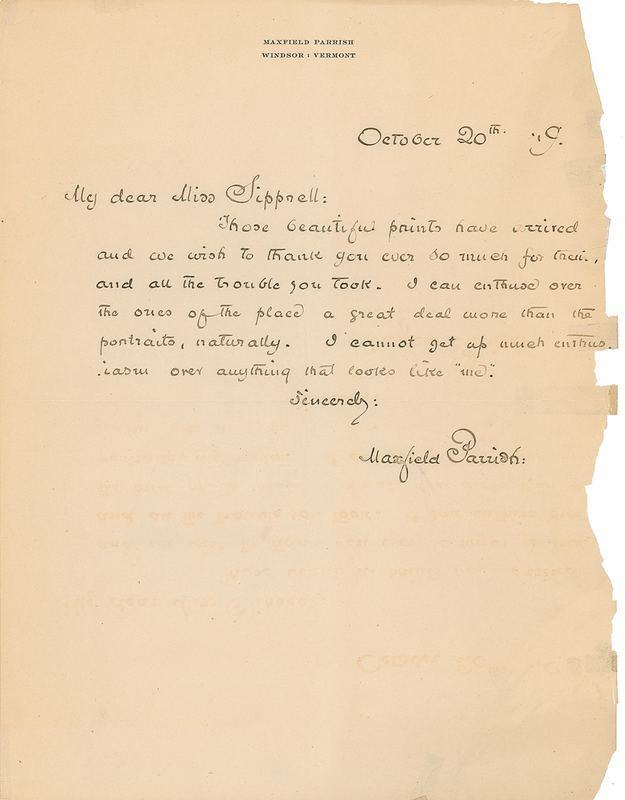 MAXFIELD PARRISH
WINDSOR : VERMONT
October 20th. '19.
My dear Miss Sipprell:
Those beautiful prints have arrived
and we wish to thank you ever so much for them,
and all the trouble you took. I can enthuse over
the ones of the place a great deal more than the
portraits, naturally. I cannot get up much enthus-
iasm over anything that looks like "me".
Sincerely:
Maxfield Parrish: